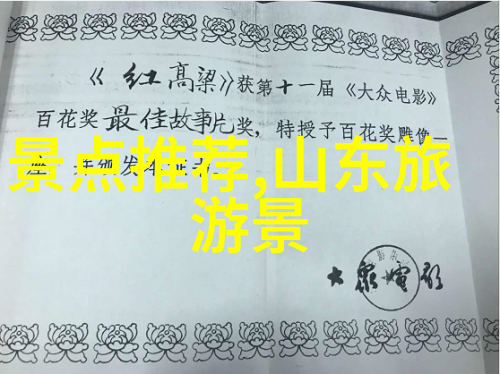 《红高粱》获第十一届《大众电影》
百花奖最佳故事片奖，特授予百花奖雕像一
座
景点推荐,山东旅
游景
大众电影